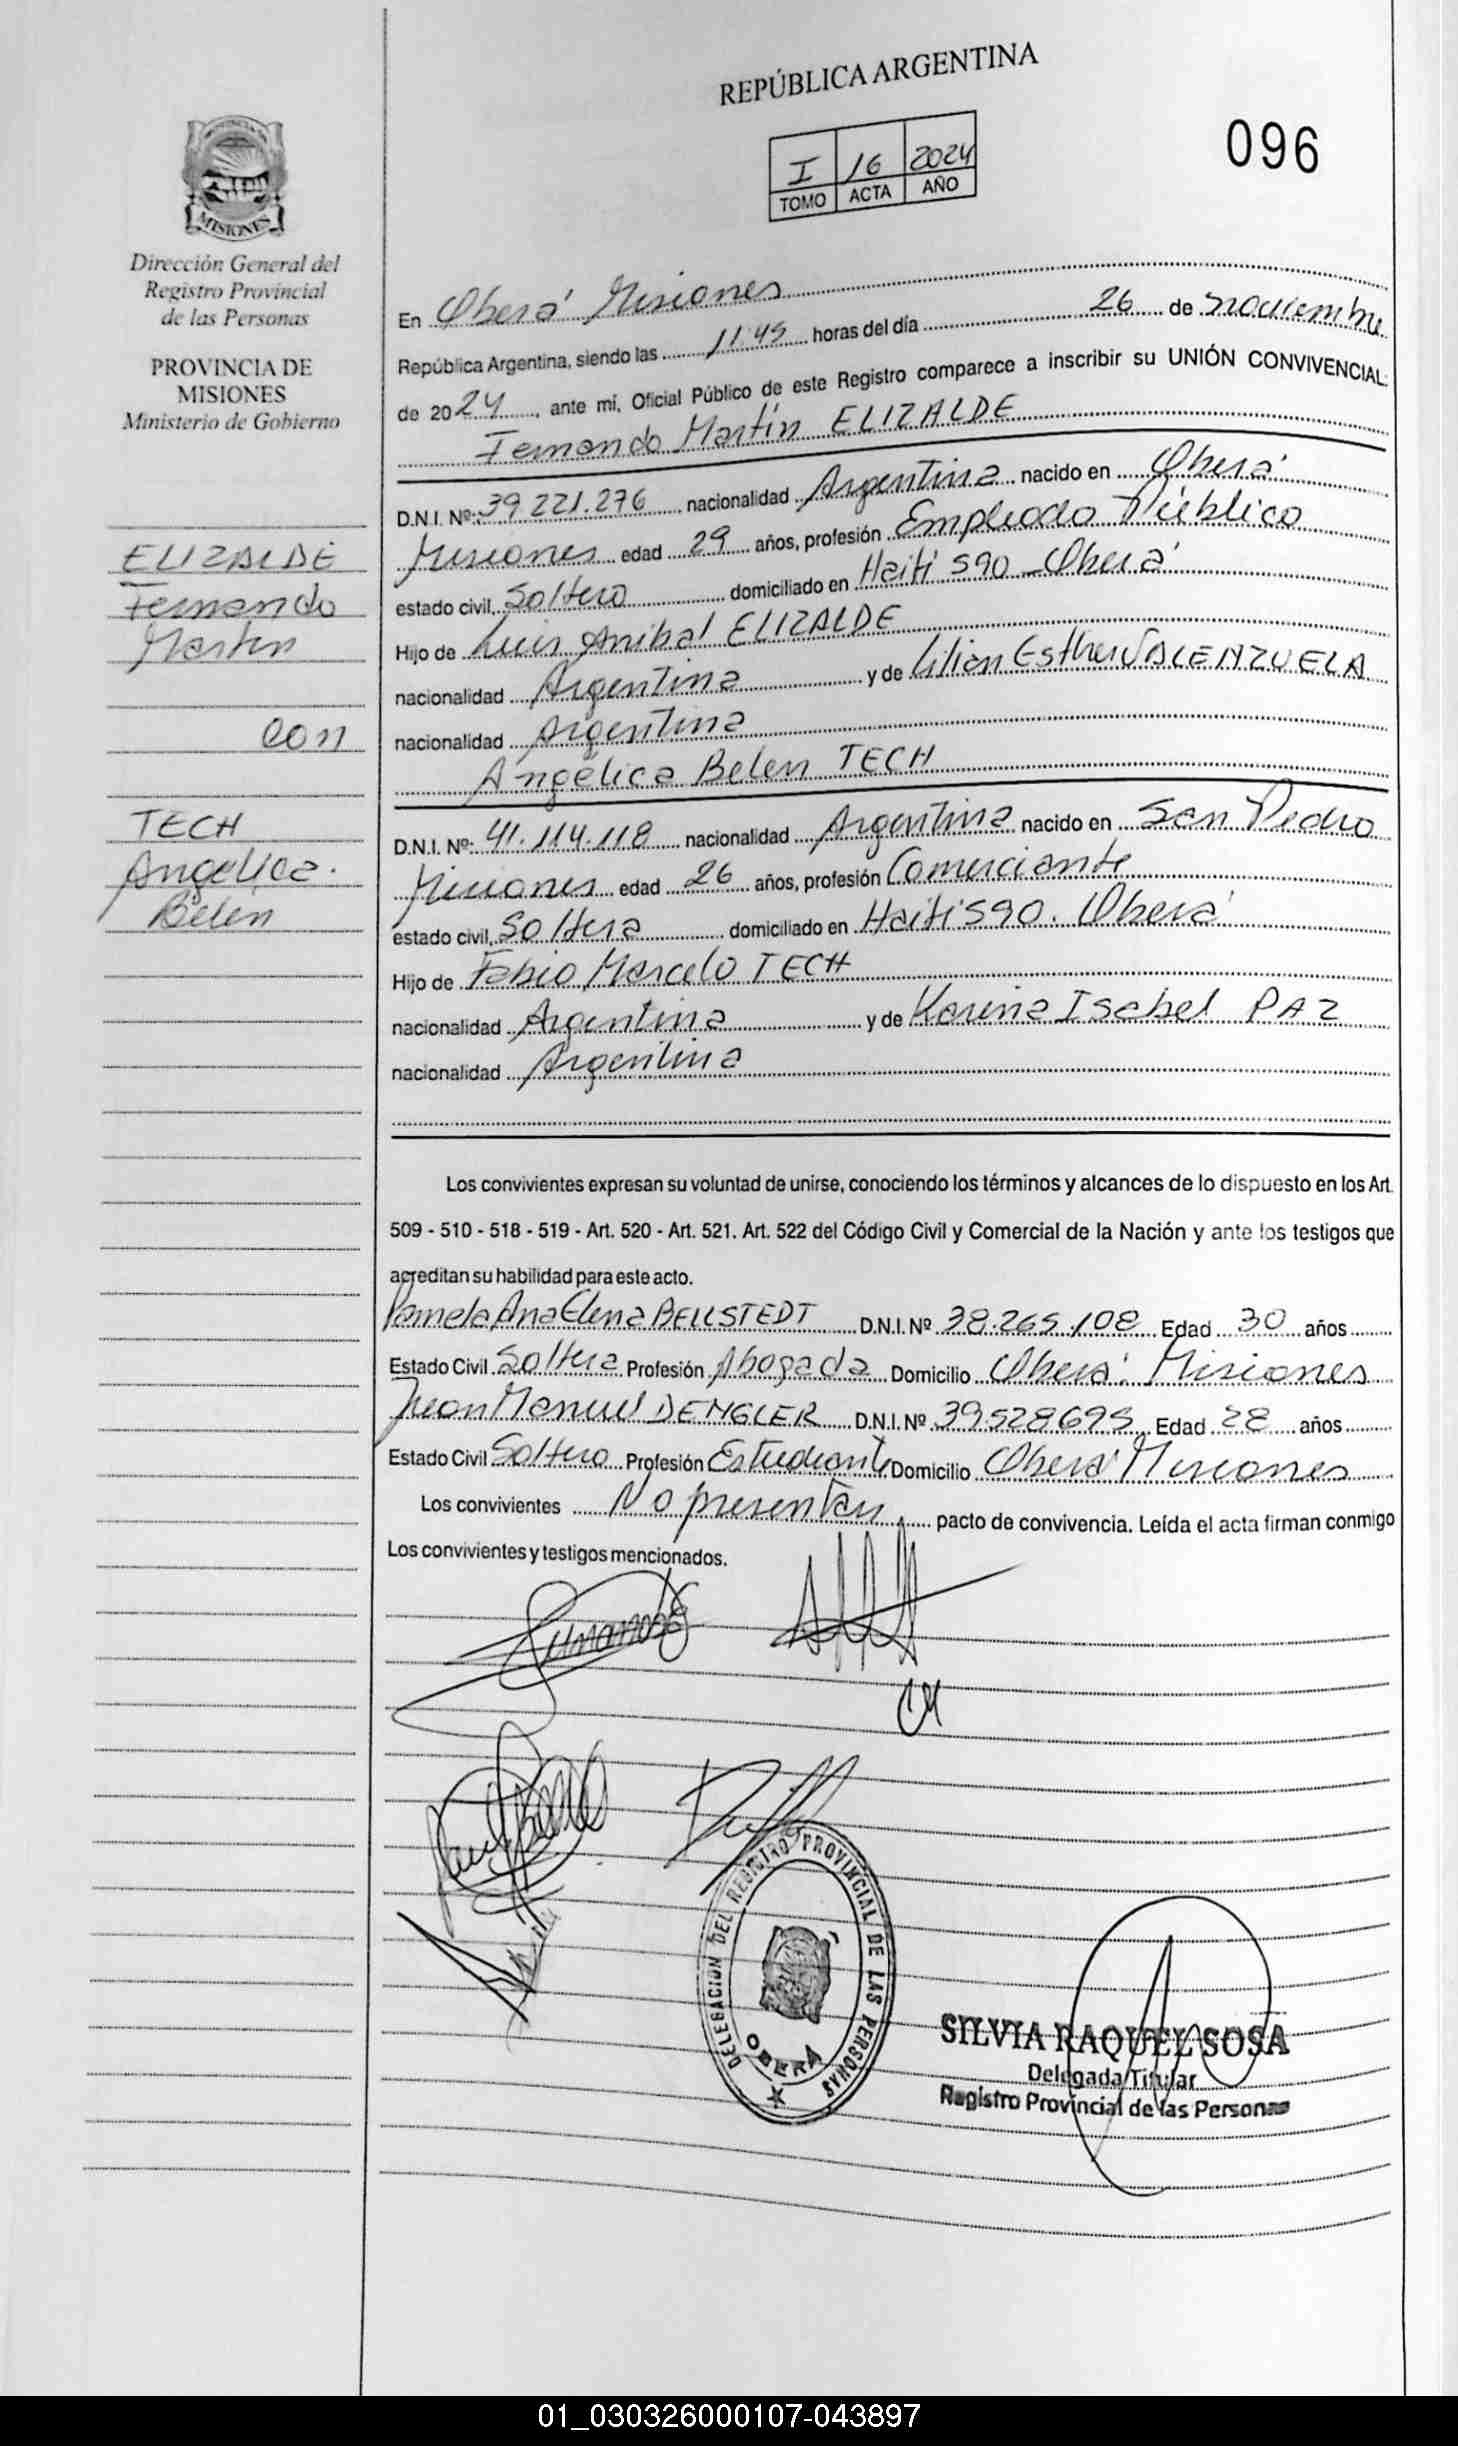 REPÚBLICA ARGENTINA
096
I 16 2024
TOMO ACTA AÑO
PROVINCIA DE
MISIONES
Dirección General del
Registro Provincial
de las Personas
PROVINCIA DE
MISIONES
Ministerio de Gobierno
ELIZALDE
Fernando
Martín
con
TECH
Angélica
Belén
En Oberá Misiones
República Argentina, siendo las 11:45 horas del día 26 de noviembre
de 2024, ante mí, Oficial Público de este Registro comparece a inscribir su UNIÓN CONVIVENCIAL:
Fernando Martín ELIZALDE
D.N.I. Nº: 39.221.276 nacionalidad Argentina nacido en Oberá
Misiones edad 29 años, profesión Empleado Público
estado civil, Soltero domiciliado en Haití 590 - Oberá
Hijo de Luis Anibal ELIZALDE
nacionalidad Argentina y de Lilian Esther VALENZUELA
nacionalidad Argentina
Angélica Belén TECH
D.N.I. Nº: 41.114.118 nacionalidad Argentina nacido en San Pedro
Misiones edad 26 años, profesión Comerciante
estado civil, Soltera domiciliado en Haití 590. Oberá
Hijo de Fabio Marcelo TECH
nacionalidad Argentina y de Karina Isabel PAZ
nacionalidad Argentina
Los convivientes expresan su voluntad de unirse, conociendo los términos y alcances de lo dispuesto en los Art.
509 - 510 - 518 - 519 - Art. 520 - Art. 521. Art. 522 del Código Civil y Comercial de la Nación y ante los testigos que
acreditan su habilidad para este acto.
Pamela Ana Elena BELLSTEDT D.N.I. Nº 38.265.108 Edad 30 años
Estado Civil Soltera Profesión Abogada Domicilio Oberá. Misiones
Juan Manuel DENGLER D.N.I. Nº 39.528.695 Edad 28 años
Estado Civil Soltero Profesión Estudiante Domicilio Oberá Misiones
Los convivientes No presentan pacto de convivencia. Leída el acta firman conmigo
Los convivientes y testigos mencionados.
DELEGACION DEL REGISTRO PROVINCIAL DE LAS PERSONAS
OBERA
SILVIA RAQUEL SOSA
Delegada Titular
Registro Provincial de las Personas
01_030326000107-043897